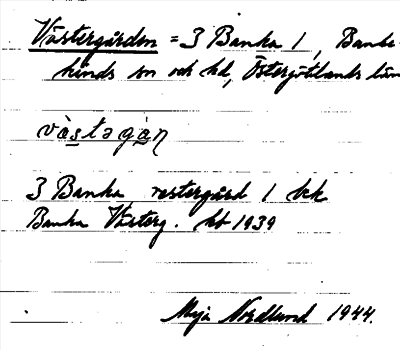 Västergården = 3 Banka 1, Banke-
kinds sn och hd, Östergötlands län
västagån
3 Banka, västergård 1 bck
Banka Västerg. kb 1939
Maja Nordlund 1944.